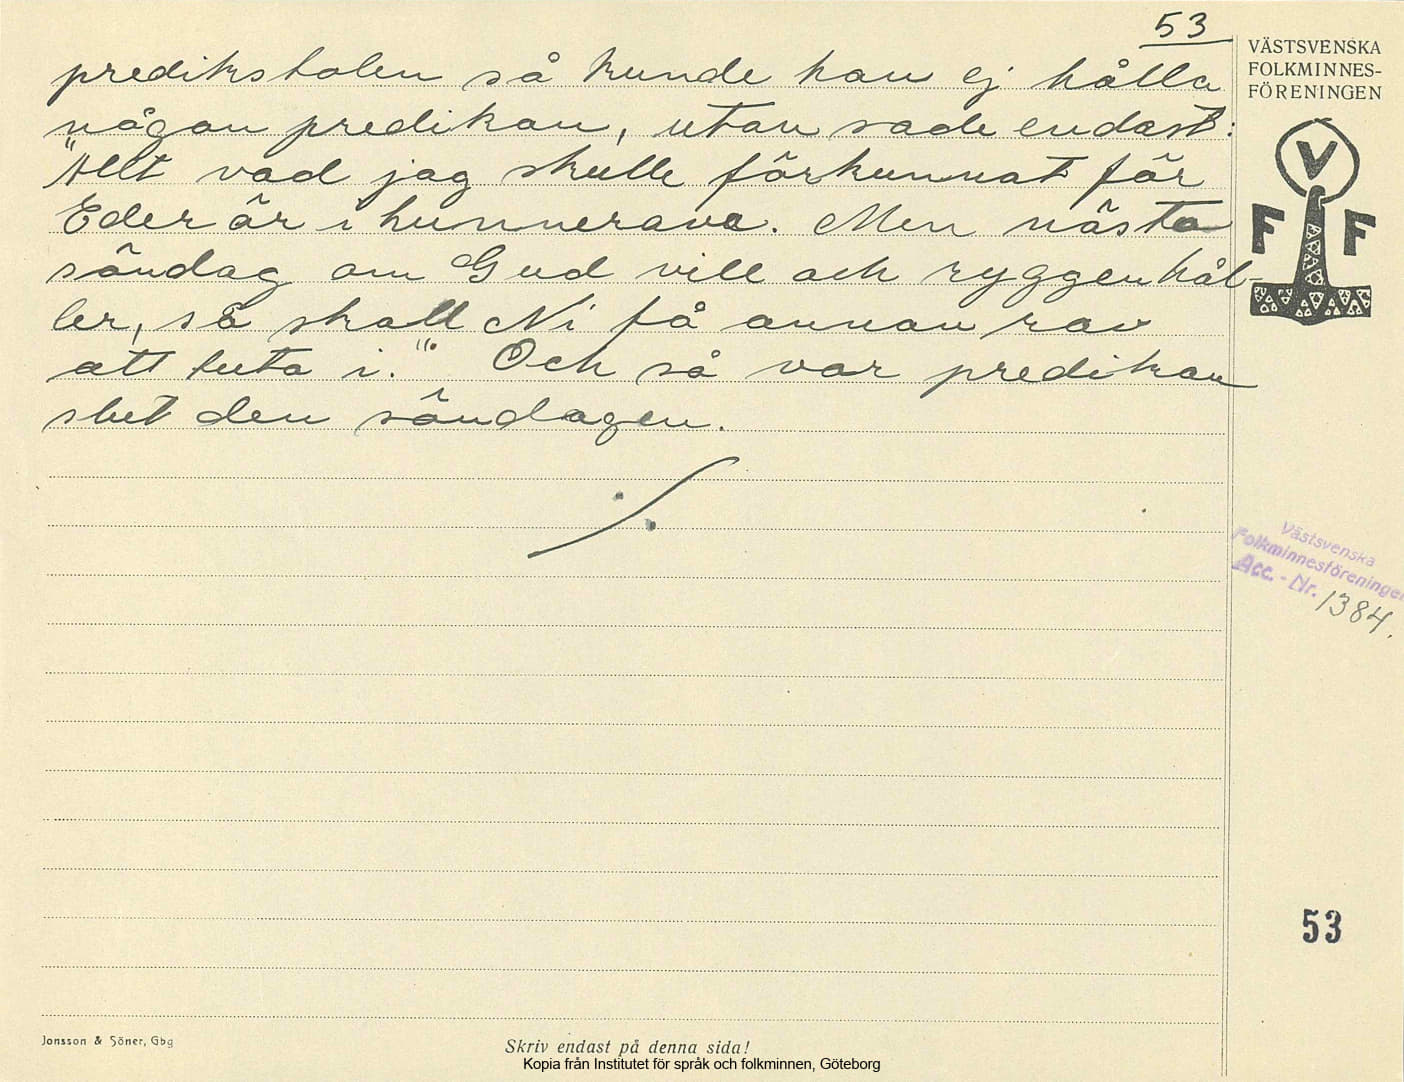 53
predikstolen så kunde han ej hålla
någon predikan, utan sade endast:
"Allt vad jag skulle förkunnat för
Eder är i hunnerava. Men nästa
söndag om Gud vill och ryggen hål-
ler, så skall Ni få annan rav
att tuta i." Och så var predikan
slut den söndagen.
VÄSTSVENSKA
FOLKMINNES-
FÖRENINGEN
V
F F
Västsvenska
Folkminnesföreningen
Acc. - Nr. 1384.
53
Jonsson & Söner, Gbg
Skriv endast på denna sida!
Kopia från Institutet för språk och folkminnen, Göteborg